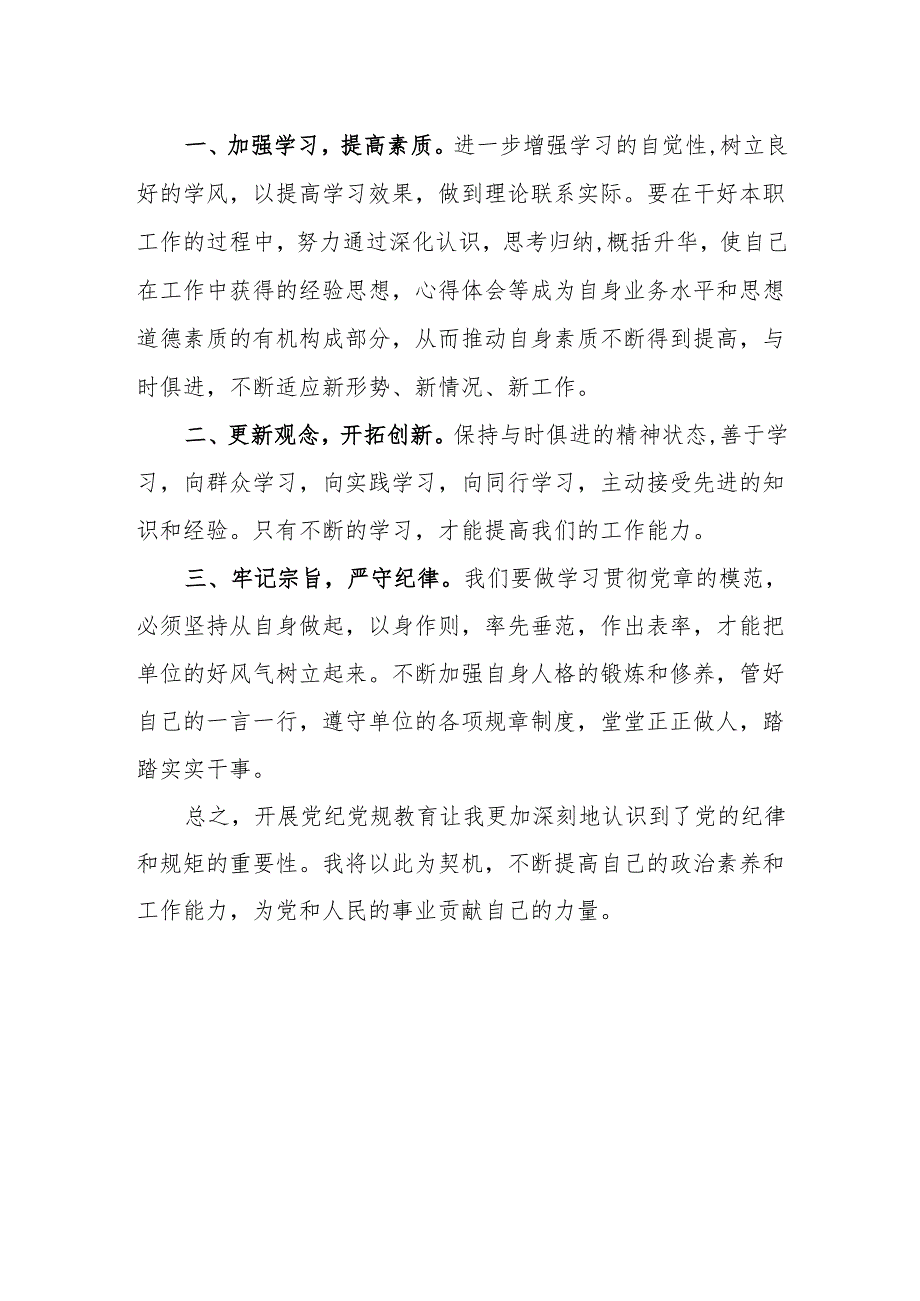 一、加强学习，提高素质。进一步增强学习的自觉性,树立良
好的学风，以提高学习效果，做到理论联系实际。要在干好本职
工作的过程中，努力通过深化认识，思考归纳,概括升华，使自己
在工作中获得的经验思想，心得体会等成为自身业务水平和思想
道德素质的有机构成部分，从而推动自身素质不断得到提高，与
时俱进，不断适应新形势、新情况、新工作。
二、更新观念，开拓创新。保持与时俱进的精神状态,善于学
习，向群众学习，向实践学习，向同行学习，主动接受先进的知
识和经验。只有不断的学习，才能提高我们的工作能力。
三、牢记宗旨，严守纪律。我们要做学习贯彻党章的模范，
必须坚持从自身做起，以身作则，率先垂范，作出表率，才能把
单位的好风气树立起来。不断加强自身人格的锻炼和修养，管好
自己的一言一行，遵守单位的各项规章制度，堂堂正正做人，踏
踏实实干事。
总之，开展党纪党规教育让我更加深刻地认识到了党的纪律
和规矩的重要性。我将以此为契机，不断提高自己的政治素养和
工作能力，为党和人民的事业贡献自己的力量。